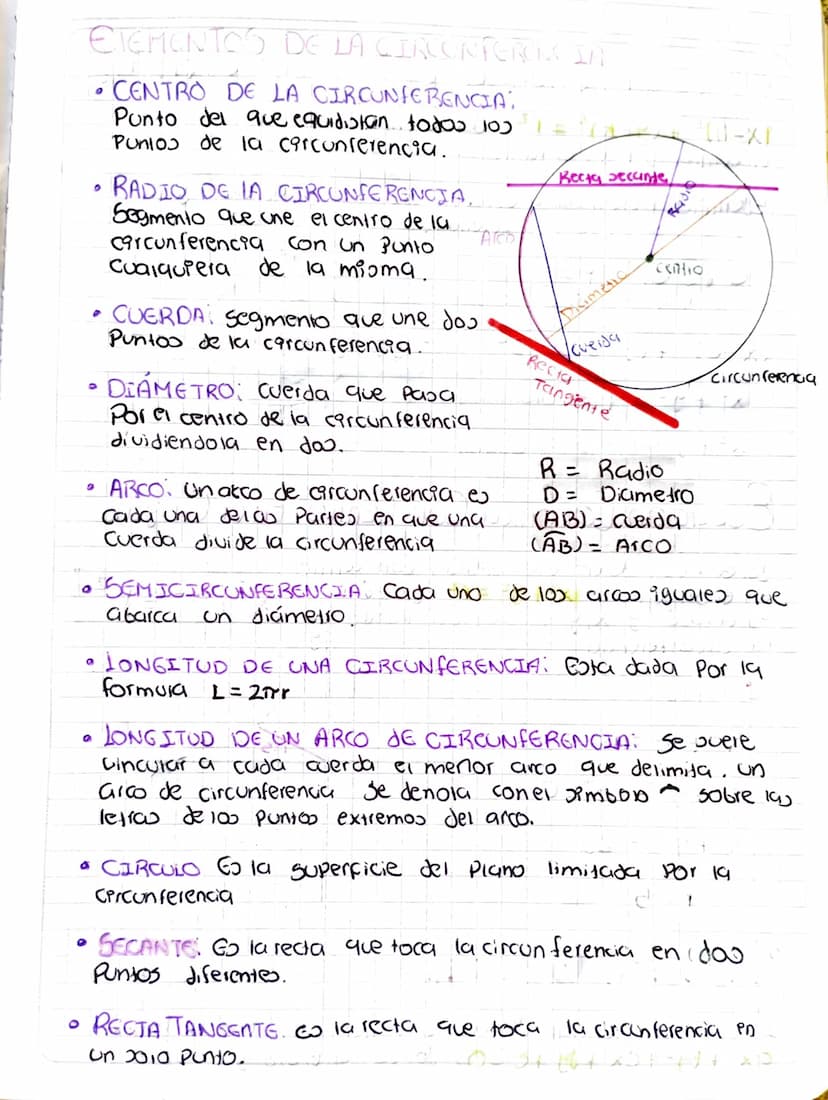 ELEMENTOS DE LA CIRCUNFERENCIA
• CENTRO DE LA CIRCUNFERENCIA:
Punto del que equidistan todos los
Puntos de la circunferencia.
• RADIO DE LA CIRCUNFERENCIA.
Segmento que une el centro de la
circunferencia con un Punto
cualquiera de la misma.
• CUERDA: Segmento que une dos
Puntos de la circunferencia.
• DIÁMETRO: Cuerda que Pasa
Por el centro de la circunferencia
dividiendola en dos.
• ARCO: Un arco de circunferencia es
cada una de las Partes en que una
cuerda divide la circunferencia
Recta secante
Radio
Arco
centro
Diametro
Cuerda
Recta
Tangente
circunferencia
R = Radio
D = Diametro
(AB) = cuerda
(A͡B) = Arco
• SEMICIRCUNFERENCIA: Cada uno de los arcos iguales que
abarca un diámetro.
• LONGITUD DE UNA CIRCUNFERENCIA: Esta dada Por la
formula L = 2πr
• LONGITUD DE UN ARCO DE CIRCUNFERENCIA: Se suele
vincular a cada cuerda el menor arco que delimita. Un
arco de circunferencia se denota con el simbolo ⌢ sobre las
letras de los puntos extremos del arco.
• CIRCULO Es la superficie del Plano limitada Por la
circunferencia
• SECANTE: Es la recta que toca la circunferencia en dos
Puntos diferentes.
• RECTA TANGENTE. es la recta que toca la circunferencia en
un solo Punto.